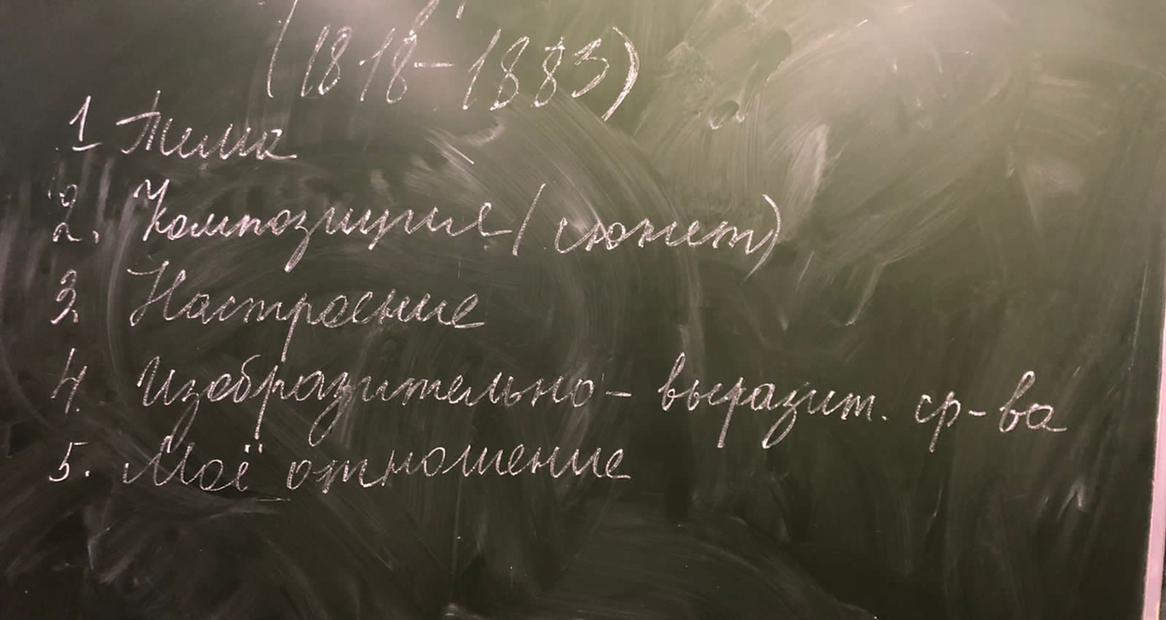 (1818-1883)
1 Тема
2. Композиция (сюжет)
3. Настроение
4. Изобразительно- выразит. ср-ва
5. Моё отношение